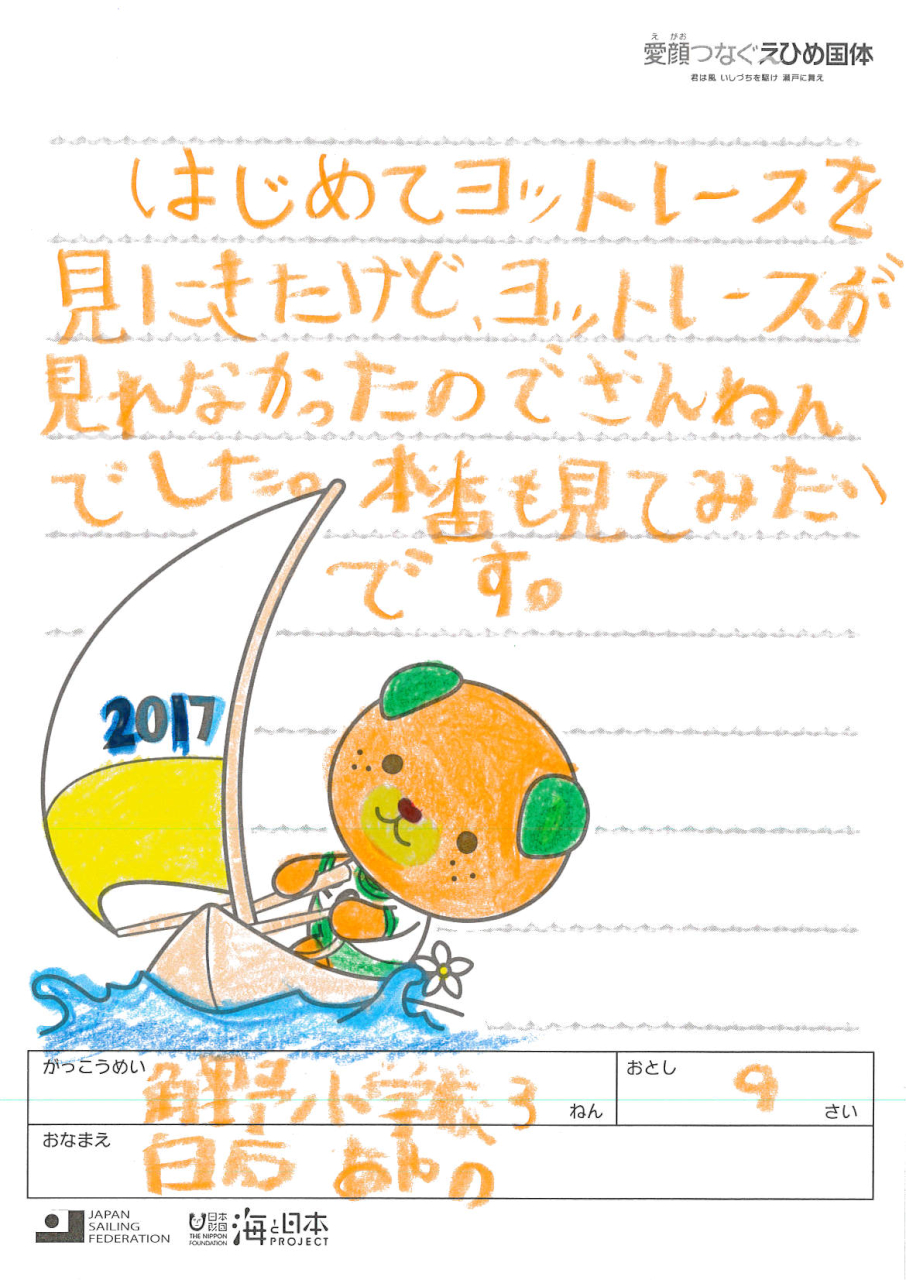 え がお
愛顔つなぐえひめ国体
君は風 いしづちを駆け 瀬戸に舞え
はじめてヨットレースを
見にきたけど、ヨットレースが
見れなかったのでざんねん
でした。本番も見てみたい
です。
2017
がっこうめい 角野小学校3 ねん
おとし 9 さい
おなまえ 白石 あんの
JAPAN
SAILING
FEDERATION
日本
財団
THE NIPPON
FOUNDATION
海と日本
PROJECT